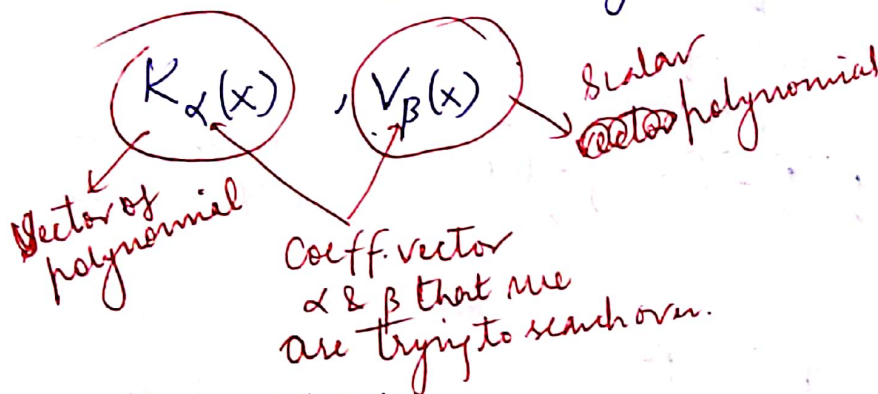 K_α(x) , V_β(x)
Scalar
polynomial
Vector of
polynomial
Coeff. vector
α & β that we
are trying to search over.